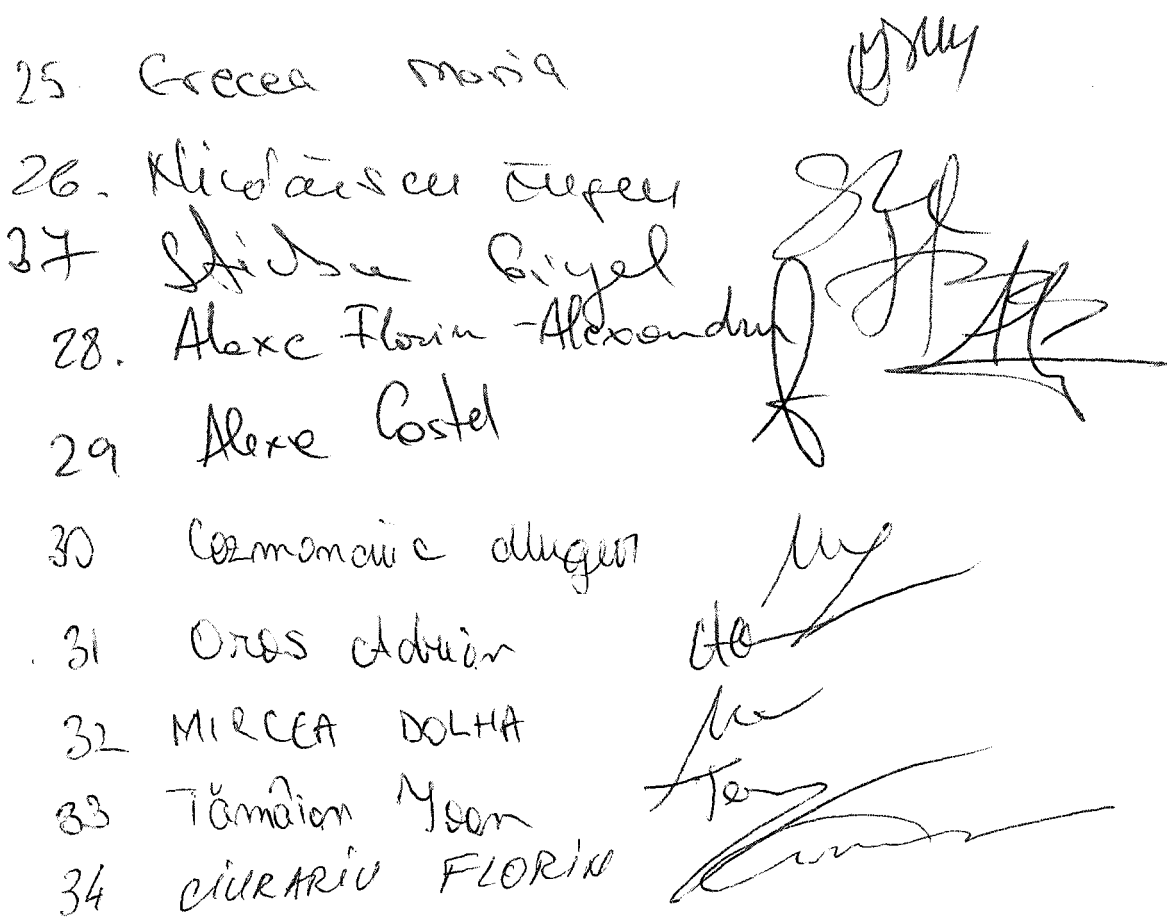 25 Grecea Maria
26. Nicolăescu Eugen
37 Știrbu Gigel
28. Alexe Florin-Alexandru
29 Alexe Costel
30 Cozmanciuc
31 Oros Adrian
32 MIRCEA DOLHA
33 Tămâian Ioan
34 CIURARIU FLORIN